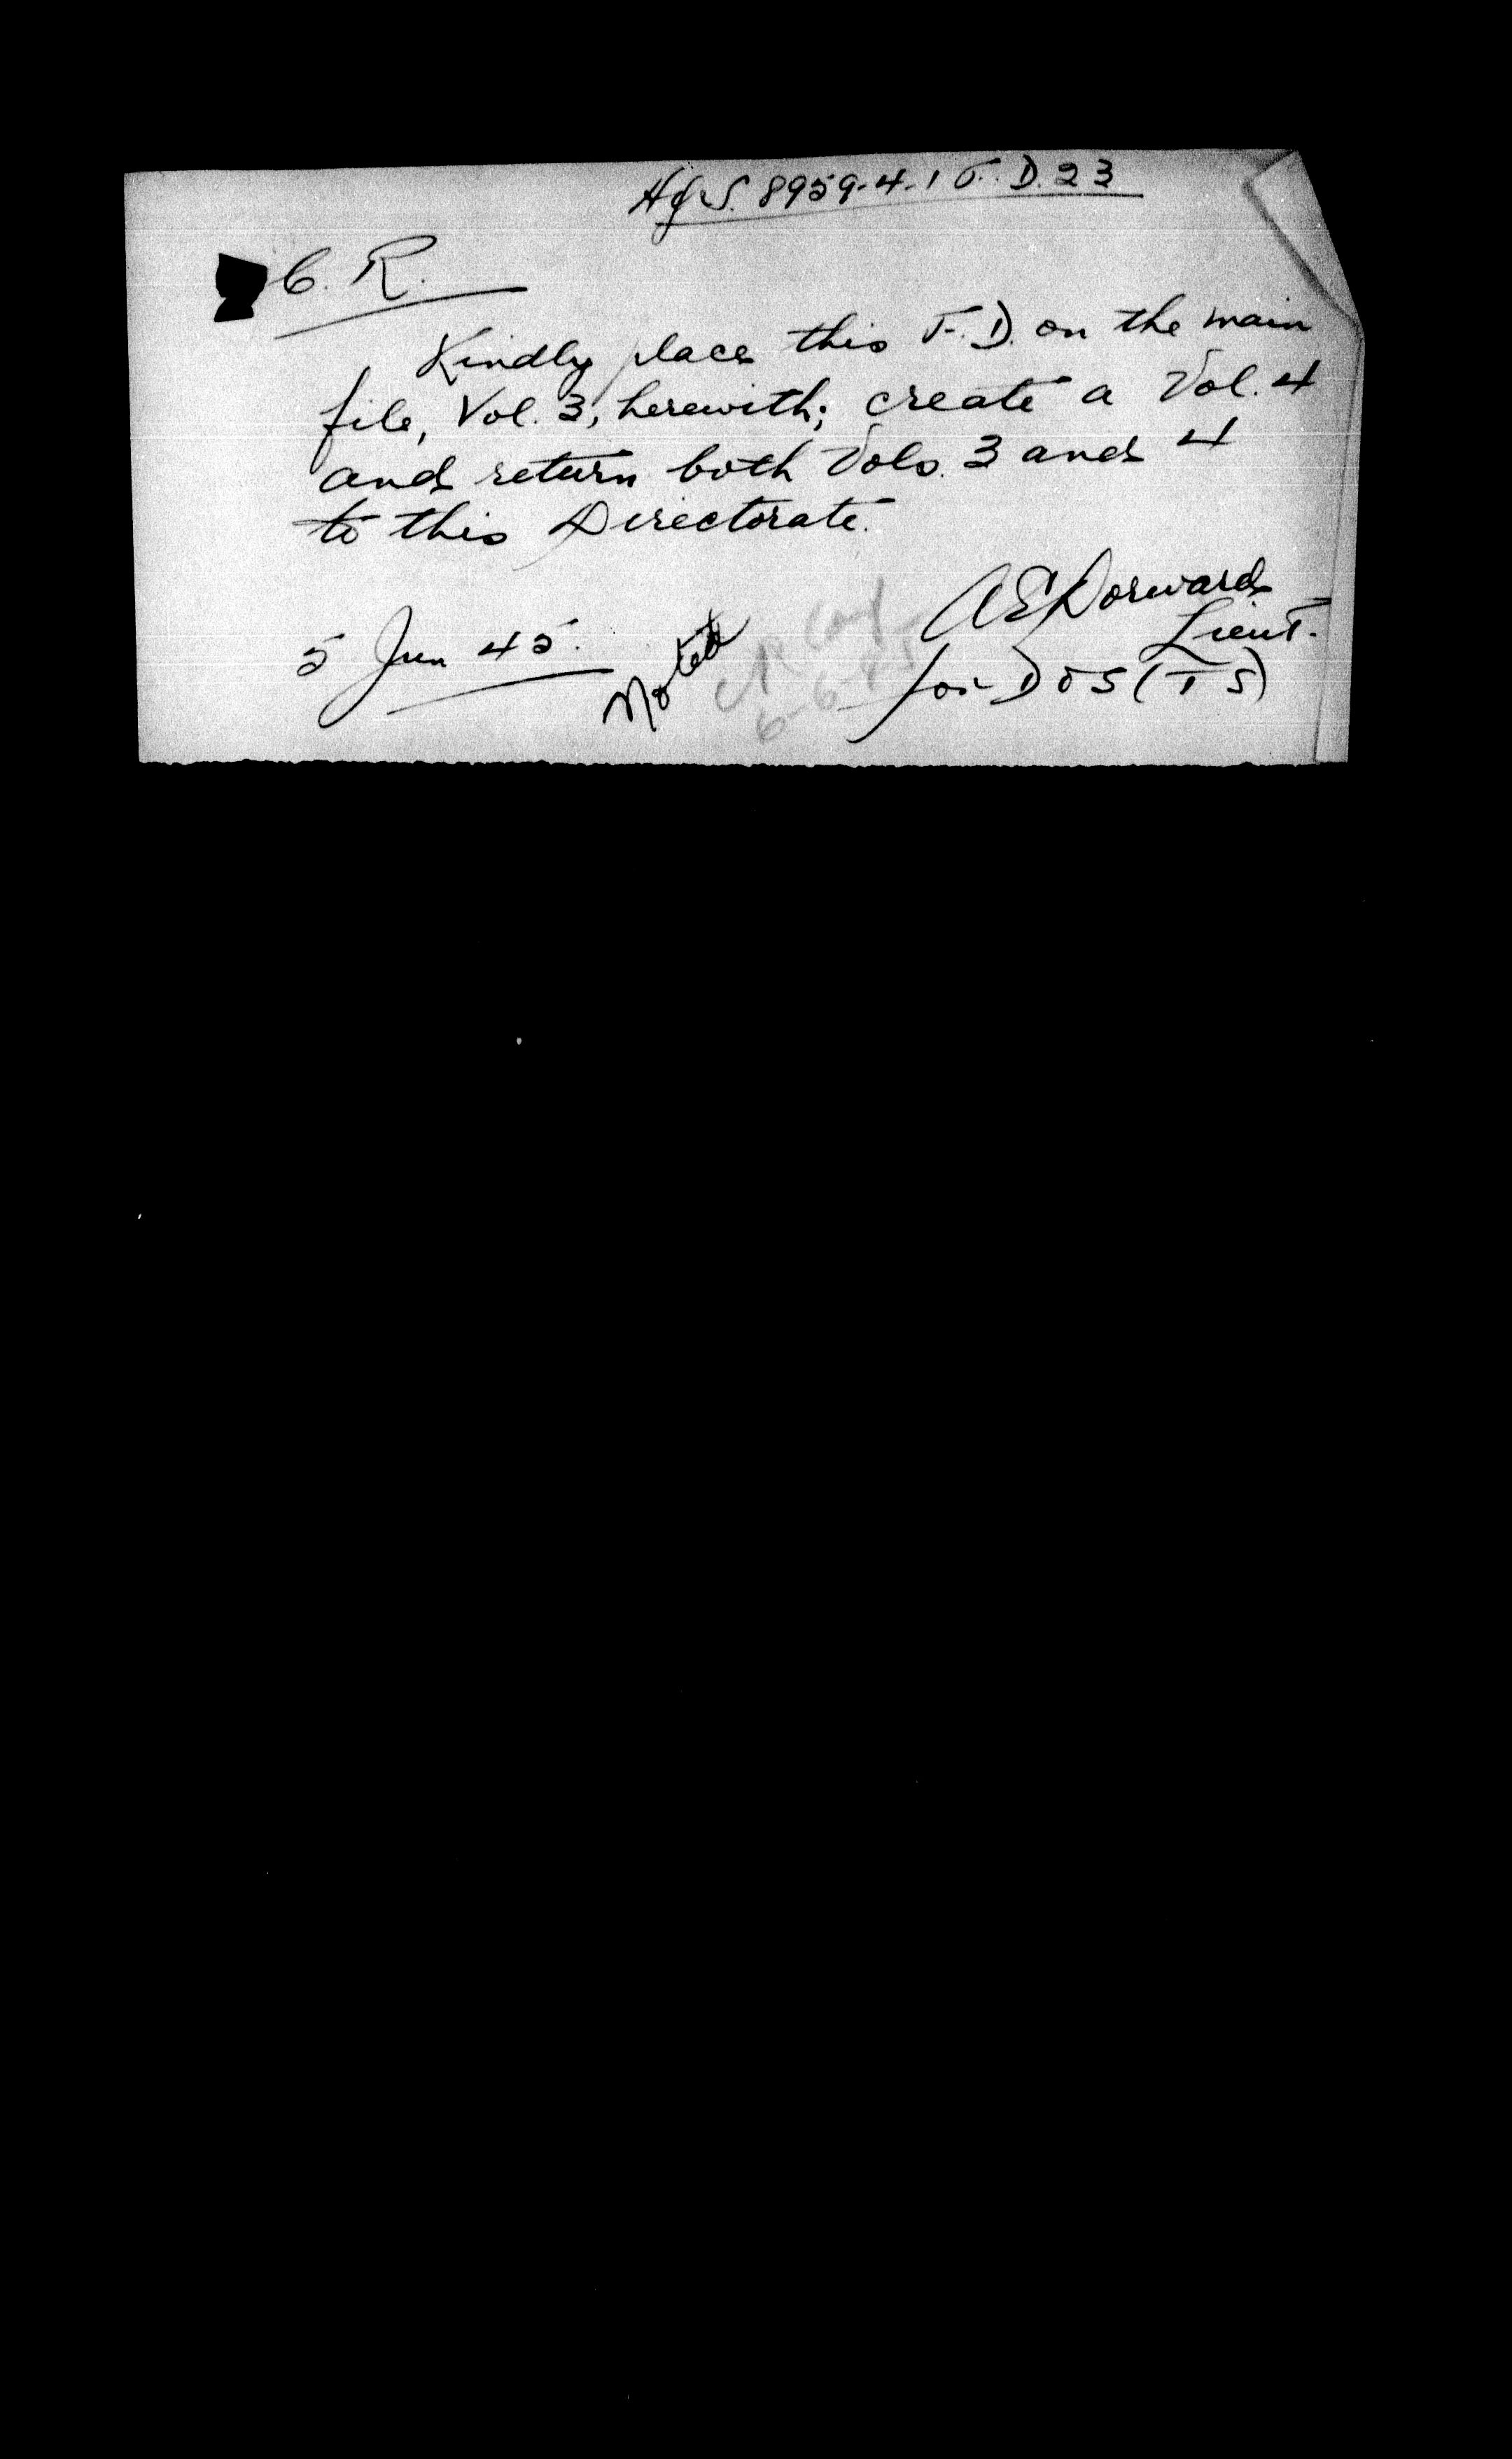 HQS. 8959-4-1 T. D. 23
C. R.
Kindly place this T. D. on the main
file, Vol. 3, herewith; create a Vol. 4
and return both Vols. 3 and 4
to this Directorate.
AE Dorward
Lieut.
5 Jun 45.
Noted
6-6-45
for D O S (T S)